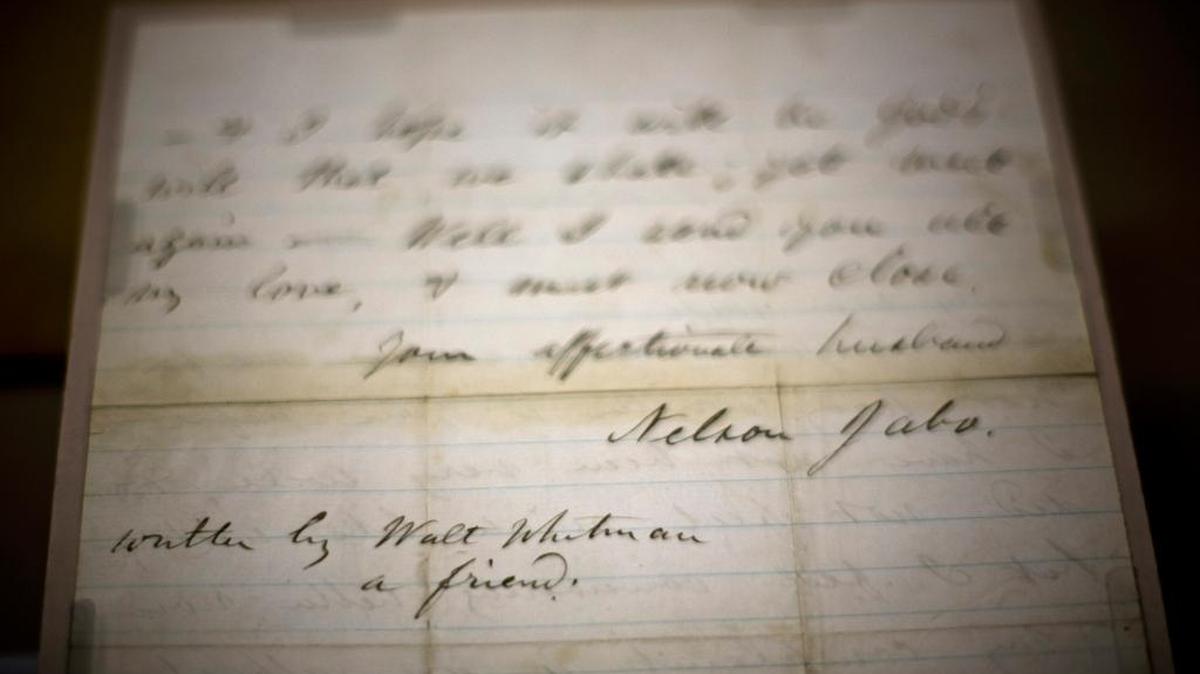 & I hope it will be God's
will that we shall yet meet
again — Well I send you all
my love, & must now close.
Your affectionate husband
Nelson Jabo.
written by Walt Whitman
a friend.